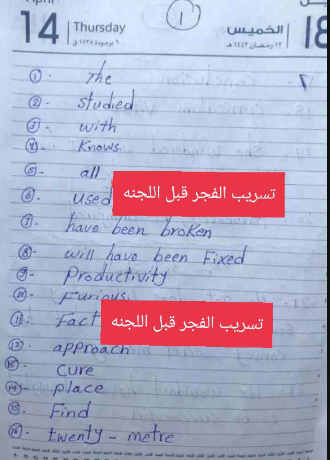 April
14 Thursday الخميس
٦ برمودة ١٧٣٨ ق ١٣ رمضان ١٤٤٣ هـ
1
① - The
② - studied
③ - with
④ - Knows
⑤ - all
⑥ - used
تسريب الفجر قبل اللجنه
⑦ - have been broken
⑧ - will have been Fixed
⑨ - Productivity
⑩ - Furious
⑪ - Fact
تسريب الفجر قبل اللجنه
⑫ - approach
⑬ - cure
⑭ - place
⑮ - Find
⑯ - twenty - metre